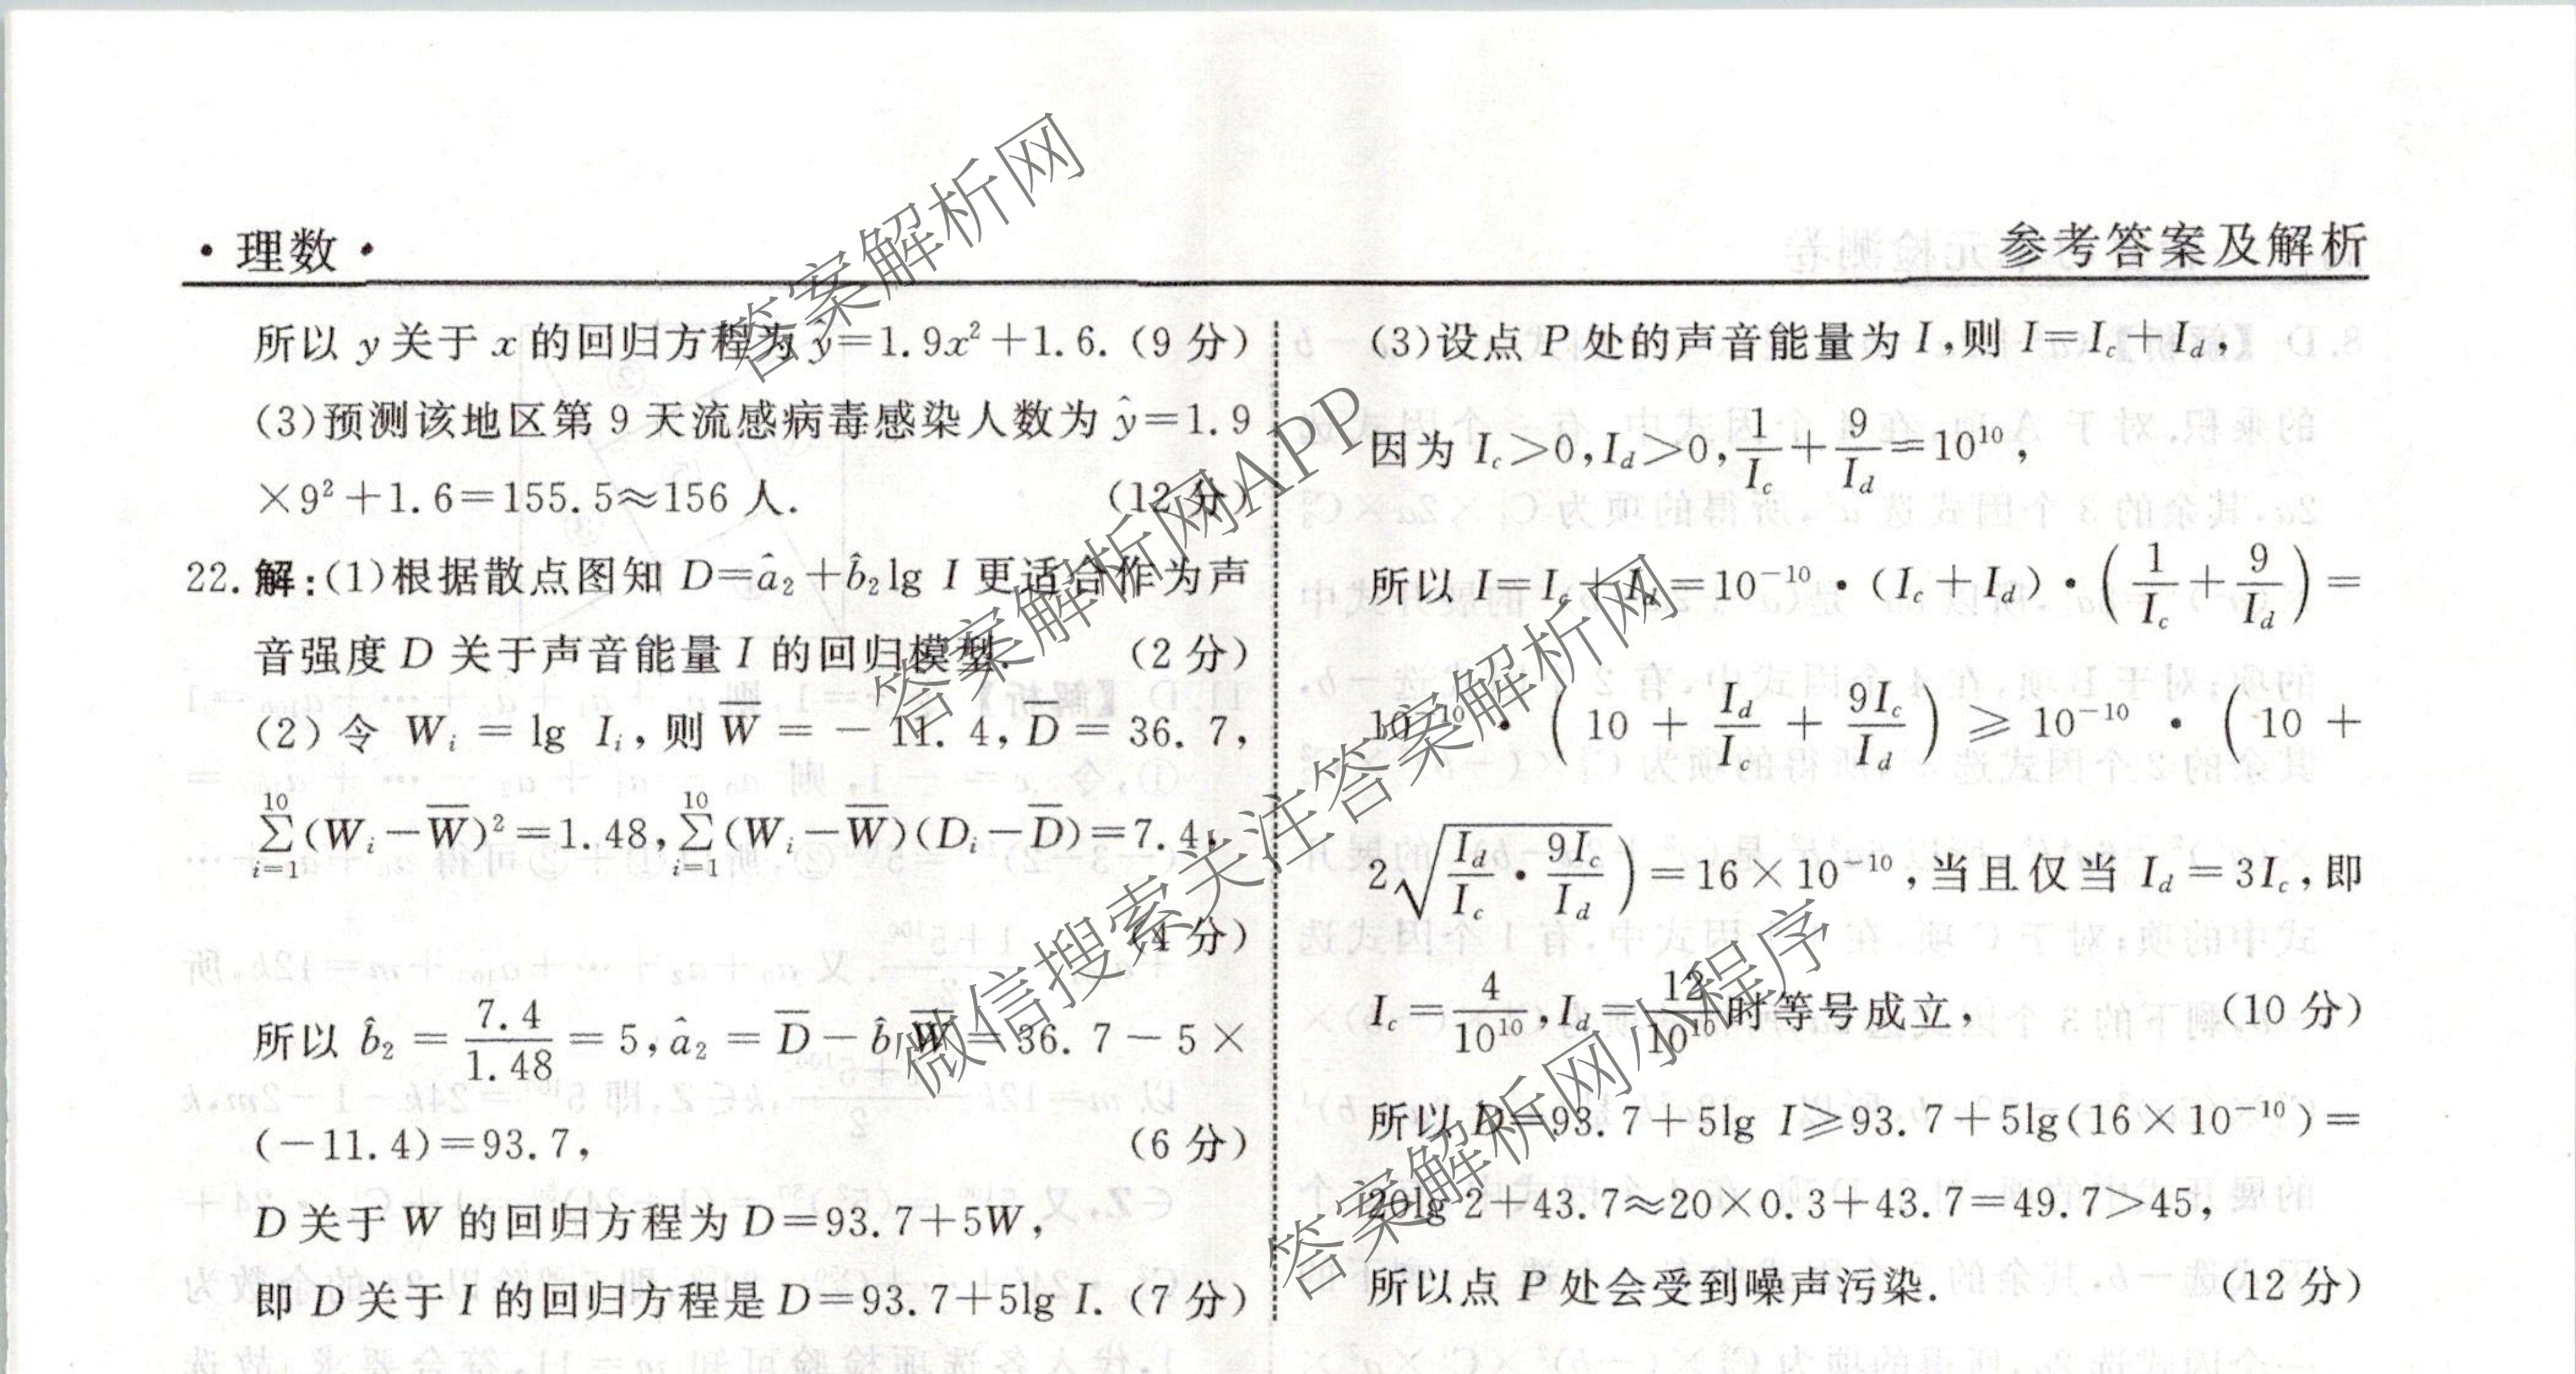 ·理数·
参考答案及解析
所以 y 关于 x 的回归方程为 ŷ=1.9x²+1.6. (9 分)
(3)预测该地区第 9 天流感病毒感染人数为 ŷ=1.9
×9²+1.6=155.5≈156 人. (12 分)
22. 解:(1)根据散点图知 D=â₂+b̂₂lg I 更适合作为声
音强度 D 关于声音能量 I 的回归模型. (2 分)
(2)令 Wᵢ = lg Iᵢ,则 W̅ = −11.4, D̅ = 36.7,
∑_{i=1}^{10}(Wᵢ−W̅)²=1.48,∑_{i=1}^{10}(Wᵢ−W̅)(Dᵢ−D̅)=7.4,
(4 分)
所以 b̂₂ = 7.4/1.48 = 5,â₂ = D̅ − b̂ W̅ = 36.7 − 5 ×
(−11.4)=93.7, (6 分)
D 关于 W 的回归方程为 D=93.7+5W,
即 D 关于 I 的回归方程是 D=93.7+5lg I. (7 分)
(3)设点 P 处的声音能量为 I,则 I=I_c+I_d,
因为 I_c>0,I_d>0,1/I_c+9/I_d=10¹⁰,
所以 I=I_c+I_d=10⁻¹⁰·(I_c+I_d)·(1/I_c+9/I_d)=
10⁻¹⁰·(10+I_d/I_c+9I_c/I_d)≥10⁻¹⁰·(10+
2√(I_d/I_c·9I_c/I_d))=16×10⁻¹⁰,当且仅当 I_d=3I_c,即
I_c=4/10¹⁰,I_d=12/10¹⁰时等号成立, (10 分)
所以 D=93.7+5lg I≥93.7+5lg(16×10⁻¹⁰)=
20lg 2+43.7≈20×0.3+43.7=49.7>45,
所以点 P 处会受到噪声污染. (12 分)
答案解析网
答案解析网APP
微信搜索关注答案解析网
答案解析网小程序